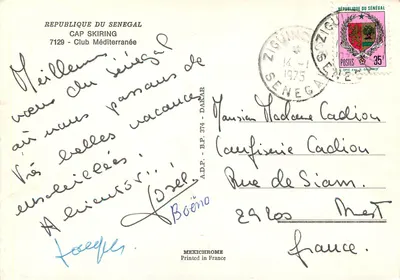 REPUBLIQUE DU SENEGAL
CAP SKIRING
7129 - Club Méditerranée
Meilleurs
vœux du Sénégal
où nous passons de
très belles vacances
ensoleillées!
A bientôt!!
José
Bobino
A.D.P. - B.P. 374 - DAKAR
MEXICHROME
Printed in France
ZIGUINCHOR
14-1
1975
SENEGAL
ZIGUINCHOR
SENEGAL
RÉPUBLIQUE DU SÉNÉGAL
POSTES
35F
Monsieur Madame Cadiou
Confiserie Cadiou
Rue de Siam.
29200 Brest
France.